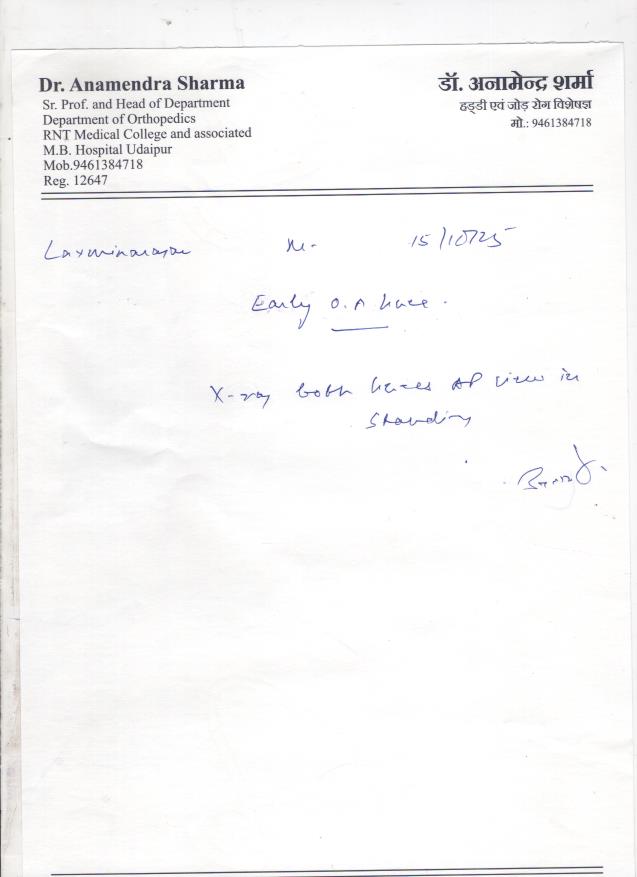 Dr. Anamendra Sharma
Sr. Prof. and Head of Department
Department of Orthopedics
RNT Medical College and associated
M.B. Hospital Udaipur
Mob.9461384718
Reg. 12647
डॉ. अनामेन्द्र शर्मा
हड्डी एवं जोड़ रोग विशेषज्ञ
मो.: 9461384718
Laxminarayan M- 15/10/25
Early O.A knee.
X-ray both knees AP view in
standing